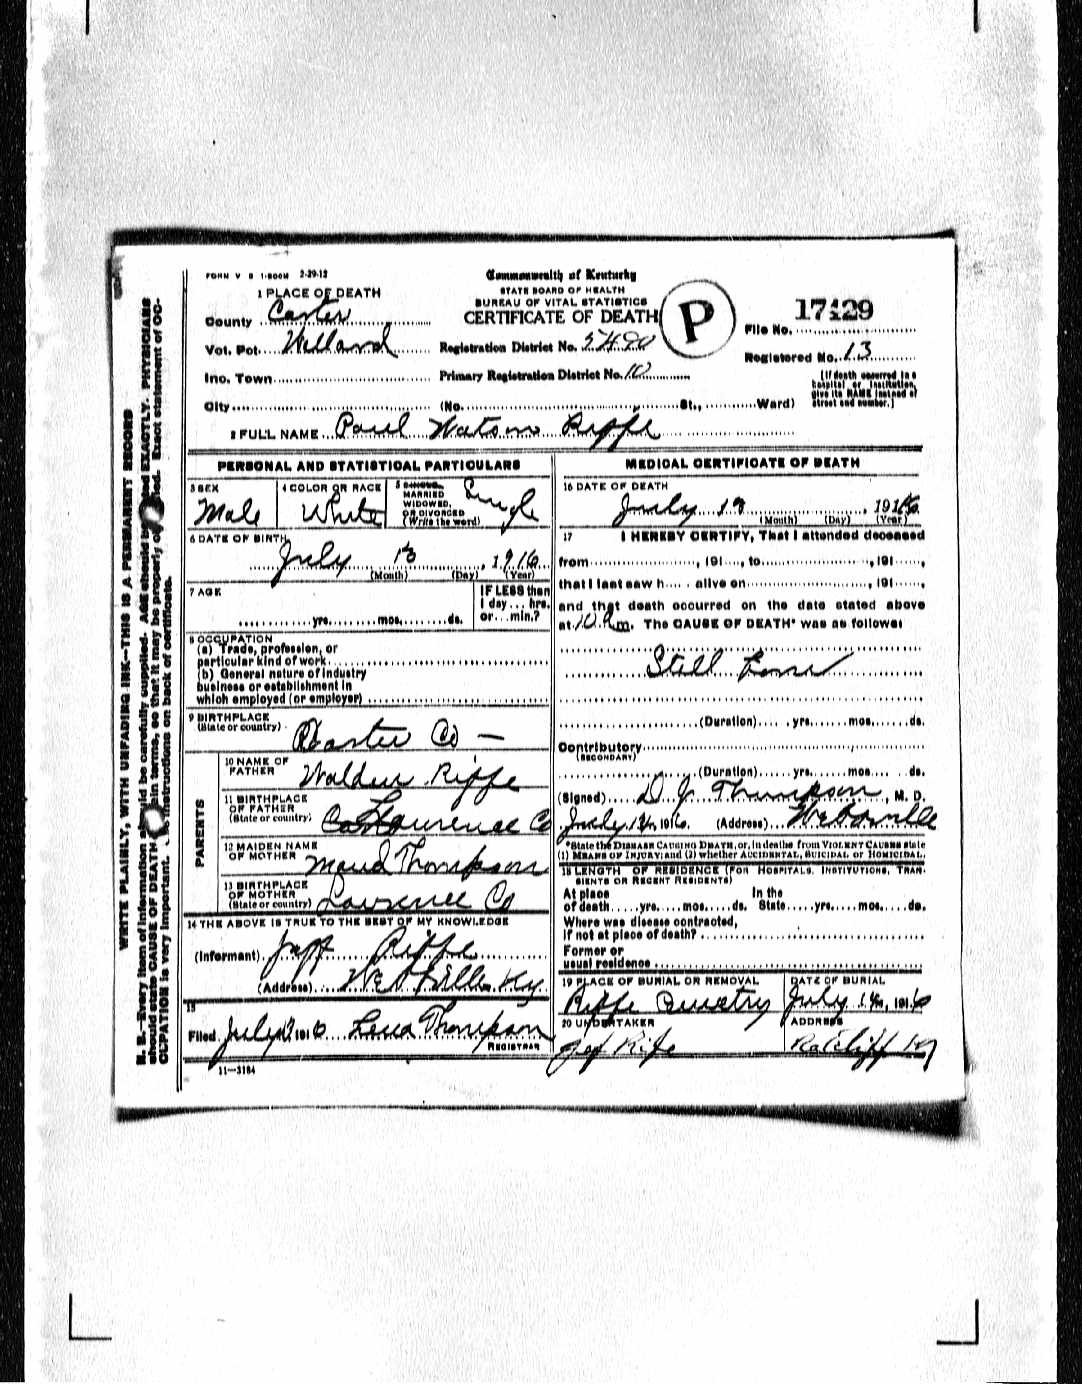 FORM V S 1-500M 2-29-12
Commonwealth of Kentucky
STATE BOARD OF HEALTH
BUREAU OF VITAL STATISTICS
CERTIFICATE OF DEATH
P
17429
File No.
Registered No. 13
[If death occurred in a
hospital or institution,
give its NAME instead of
street and number.]
1 PLACE OF DEATH
County Carter
Vot. Pct. Willard
Registration District No. 5490
Inc. Town
Primary Registration District No. 10
City (No. St., Ward)
2 FULL NAME Paul Watson Riffe
PERSONAL AND STATISTICAL PARTICULARS
3 SEX
Male
4 COLOR OR RACE
White
5 SINGLE
MARRIED
WIDOWED,
OR DIVORCED
(Write the word)
Single
6 DATE OF BIRTH
July 13, 1916
(Month) (Day) (Year)
7 AGE
yrs. mos. ds.
IF LESS than
1 day ... hrs.
or ... min.?
8 OCCUPATION
(a) Trade, profession, or
particular kind of work
(b) General nature of industry
business or establishment in
which employed (or employer)
9 BIRTHPLACE
(State or country)
Carter Co —
PARENTS
10 NAME OF
FATHER
Riffe
11 BIRTHPLACE
OF FATHER
(State or country)
Lawrence Co
12 MAIDEN NAME
OF MOTHER
Maud Thompson
13 BIRTHPLACE
OF MOTHER
(State or country)
Lawrence Co
14 THE ABOVE IS TRUE TO THE BEST OF MY KNOWLEDGE
(Informant) Riffe
(Address) Ky
15
Filed July 1916 Lena Thompson
REGISTRAR
11—3184
MEDICAL CERTIFICATE OF DEATH
16 DATE OF DEATH
July 13, 1916
(Month) (Day) (Year)
17 I HEREBY CERTIFY, That I attended deceased
from , 191 , to , 191 ,
that I last saw h alive on , 191 ,
and that death occurred on the date stated above
at 10 P.m. The CAUSE OF DEATH* was as follows:
Still Borne
(Duration) yrs. mos. ds.
Contributory
(SECONDARY)
(Duration) yrs. mos. ds.
(Signed) D J Thompson, M. D.
July , 1916. (Address) Webbville
*State the DISEASE CAUSING DEATH, or, in deaths from VIOLENT CAUSES state
(1) MEANS OF INJURY; and (2) whether ACCIDENTAL, SUICIDAL or HOMICIDAL.
18 LENGTH OF RESIDENCE (FOR HOSPITALS, INSTITUTIONS, TRAN-
SIENTS OR RECENT RESIDENTS)
At place In the
of death yrs. mos. ds. State yrs. mos. ds.
Where was disease contracted,
if not at place of death?
Former or
usual residence
19 PLACE OF BURIAL OR REMOVAL
Riffe Cemetry
DATE OF BURIAL
July 14, 1916
20 UNDERTAKER
Rife
ADDRESS
Ratcliff Ky
WRITE PLAINLY, WITH UNFADING INK—THIS IS A PERMANENT RECORD
N. B.—Every item of information should be carefully supplied. AGE should be stated EXACTLY. PHYSICIANS
should state CAUSE OF DEATH in plain terms, so that it may be properly classified. Exact statement of OC-
CUPATION is very important. See instructions on back of certificate.